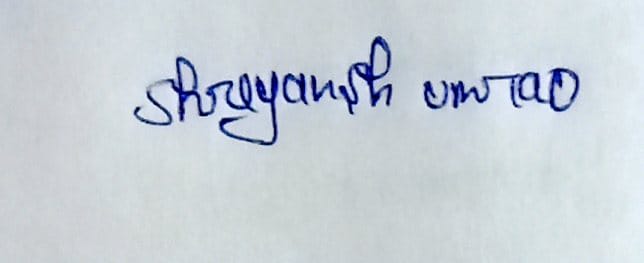 Shreyansh umrao